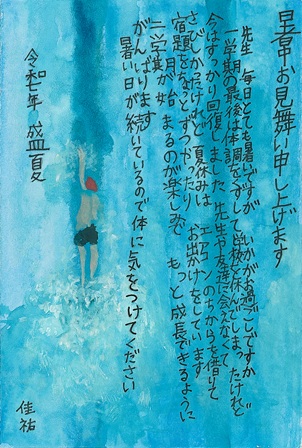 暑中お見舞い申し上げます
先生、毎日とても暑いですが いかがお過ごしですか
一学期の最後は体調をくずして学校を休んでしまったけれど
今はすっかり回復しました 先生や友達に会えなくて
さびしかったけれど 夏休みは エアコンのちからを借りて
宿題をちょっとずつやったり お出かけをしています
二学期が始まるのが楽しみで もっと成長できるように
がんばります
暑い日が続いているので体に気をつけてください
令和七年 盛夏
佳祐